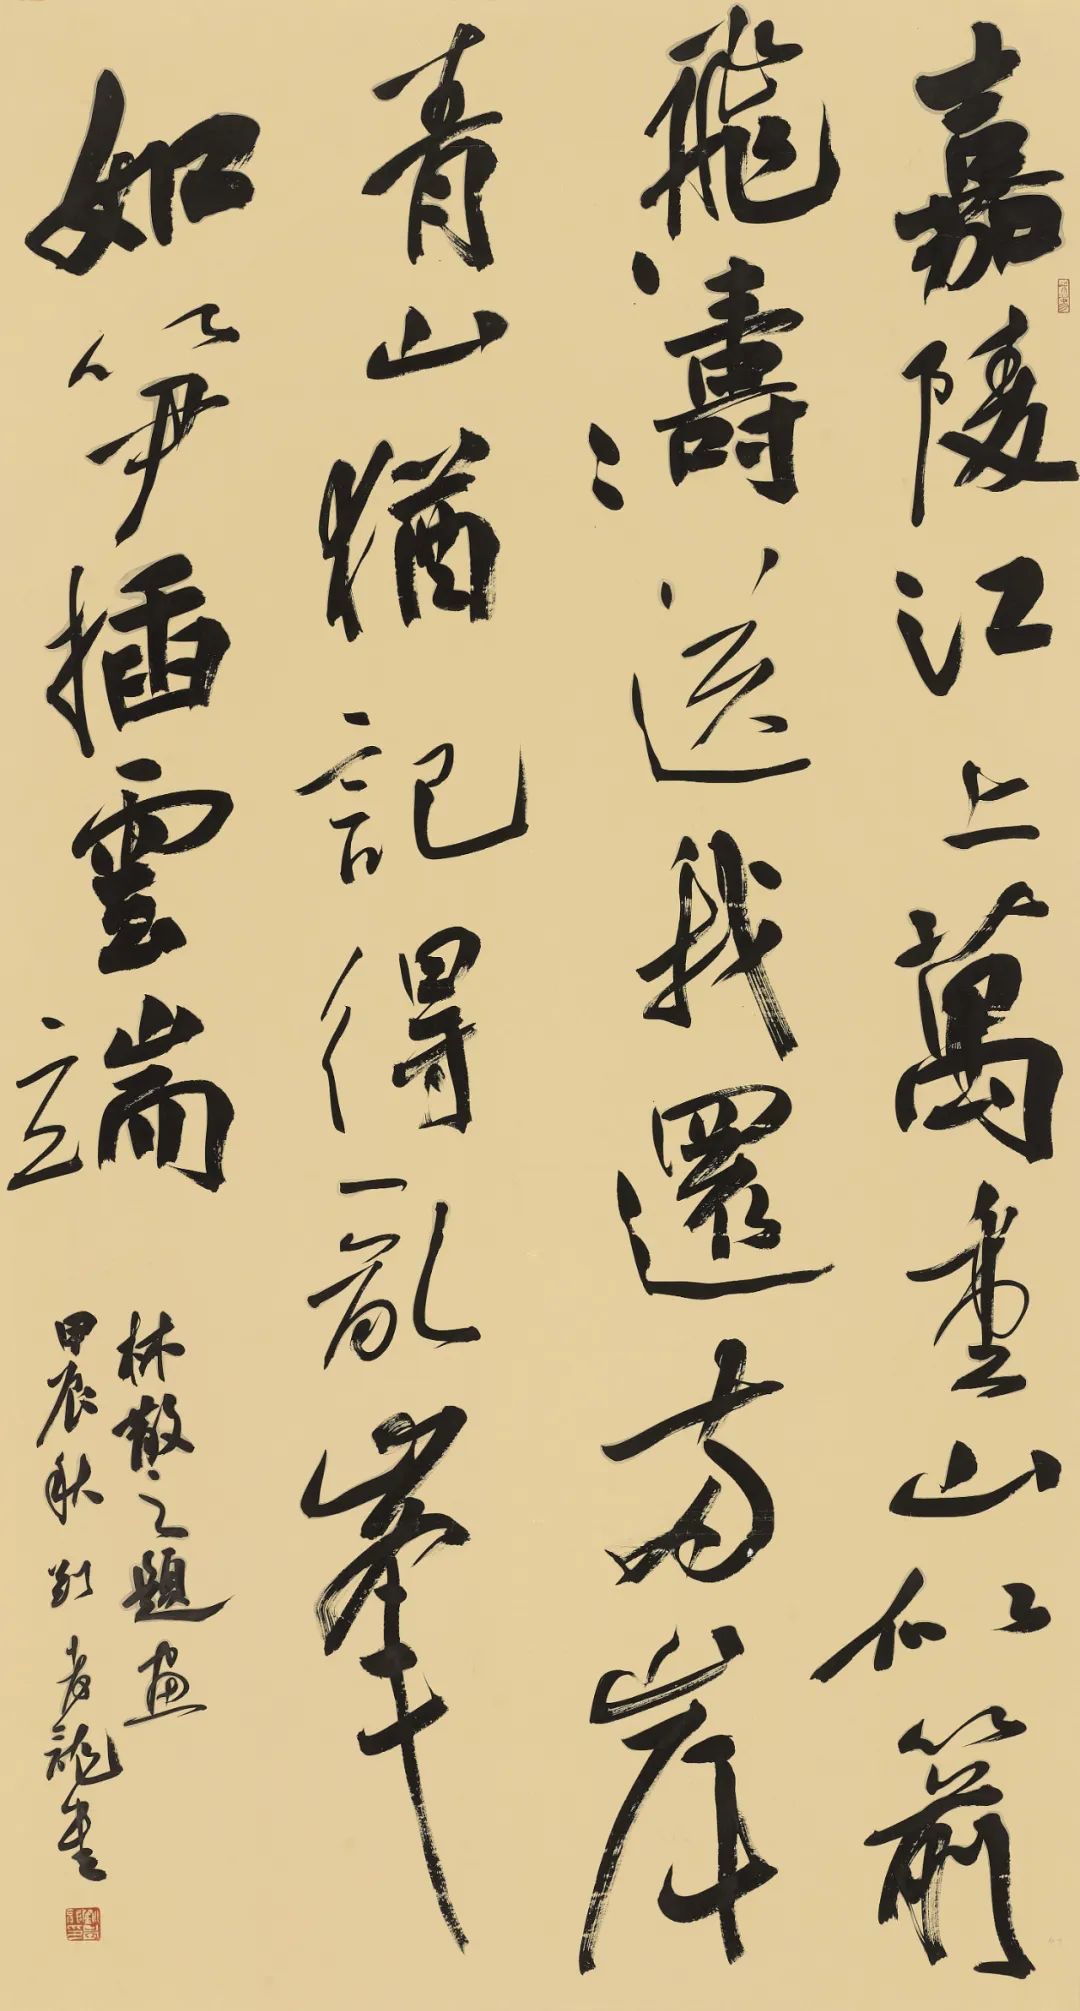 嘉陵江上萬重山似箭
飛濤送我還兩岸
青山猶記得亂峯
如笋插雲端
林散之題畫
甲辰秋劉彥龍書